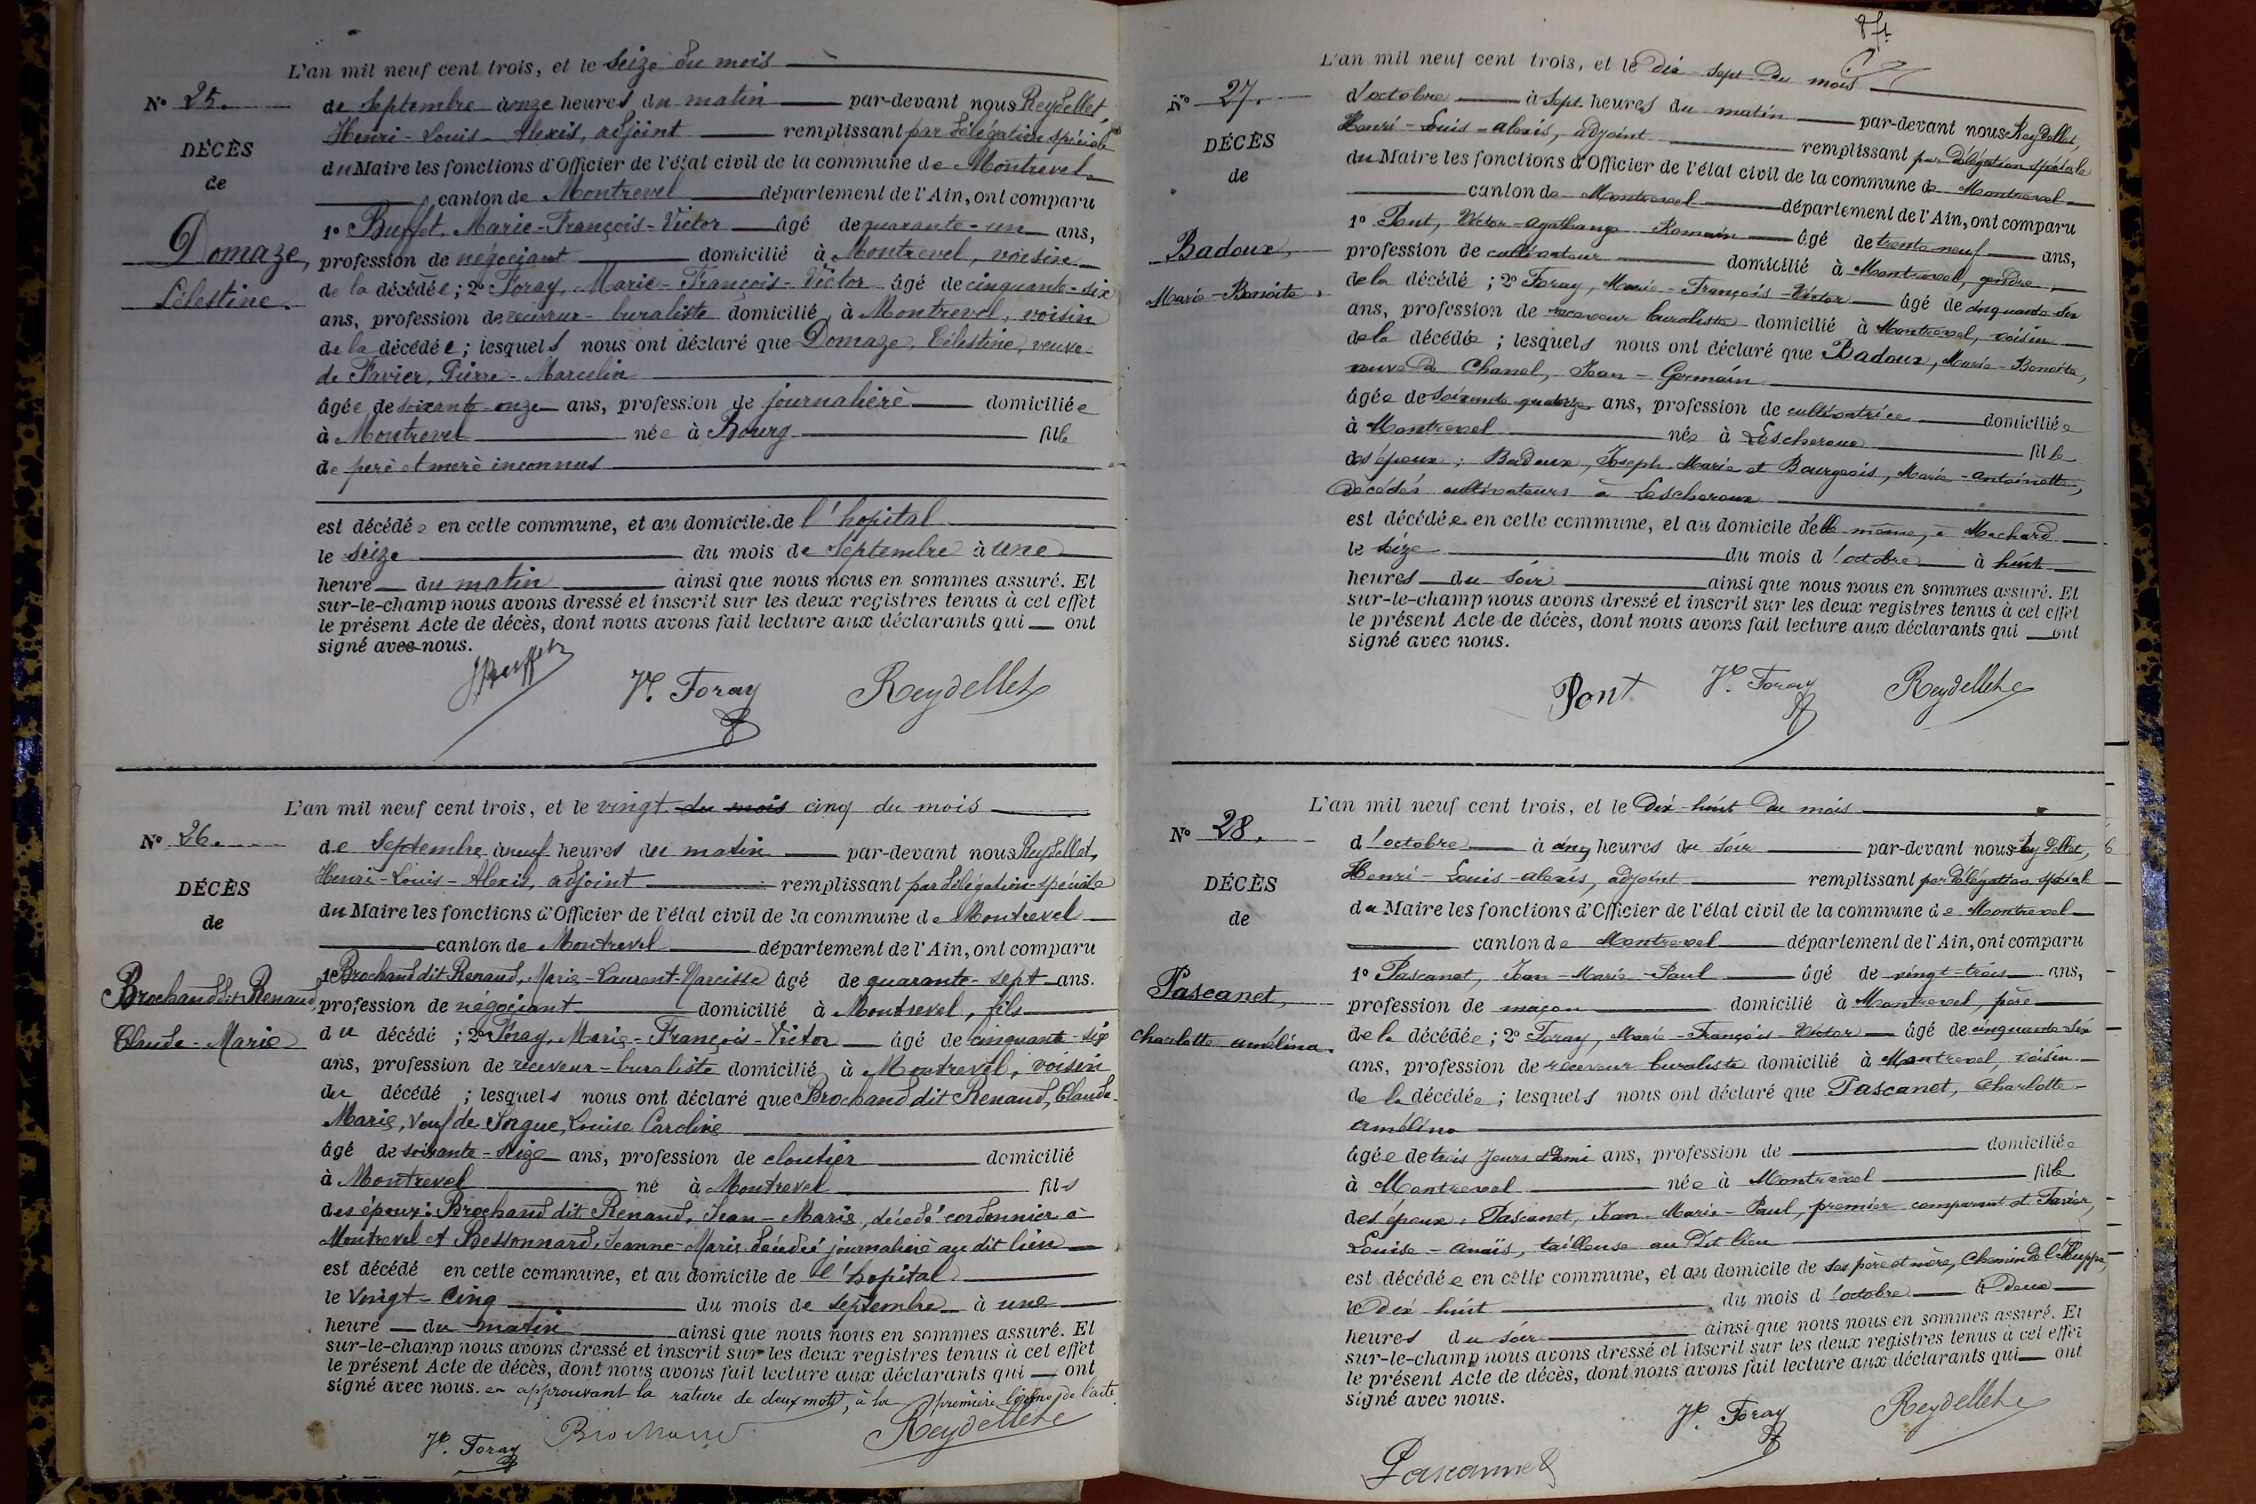 L'an mil neuf cent trois, et le Seize du mois
N° 25.
de Septembre à onze heures du matin par-devant nous Reydellet,
Henri-Louis-Alexis, adjoint remplissant par délégation spéciale
DÉCÈS
du Maire les fonctions d'Officier de l'état civil de la commune de Montrevel
de
canton de Montrevel département de l'Ain, ont comparu
1° Buffet, Marie-François-Victor âgé de quarante-un ans,
Domaze,
profession de négociant domicilié à Montrevel, voisin
de la décédée; 2° Foray, Marie-François-Victor âgé de cinquante-six
Célestine.
ans, profession de receveur-buraliste domicilié à Montrevel, voisin
de la décédée; lesquels nous ont déclaré que Domaze, Célestine, veuve
de Favier, Pierre-Marcelin
âgée de soixante-onze ans, profession de journalière domiciliée
à Montrevel née à Bourg fille
de père et mère inconnus
est décédée en cette commune, et au domicile de l'hopital
le seize du mois de Septembre à une
heure du matin ainsi que nous nous en sommes assuré. Et
sur-le-champ nous avons dressé et inscrit sur les deux registres tenus à cet effet
le présent Acte de décès, dont nous avons fait lecture aux déclarants qui ont
signé avec nous.
Buffet Vr. Foray Reydellet
L'an mil neuf cent trois, et le vingt du mois cinq du mois
N° 26.
de Septembre à neuf heures du matin par-devant nous Reydellet,
Henri-Louis-Alexis, adjoint remplissant par délégation spéciale
DÉCÈS
du Maire les fonctions d'Officier de l'état civil de la commune de Montrevel
de
canton de Montrevel département de l'Ain, ont comparu
1° Brochand dit Renaud, Marie-Laurent-Narcisse âgé de quarante-sept ans.
Brochand dit Renaud,
profession de négociant domicilié à Montrevel, fils
Claude-Marie
du décédé; 2° Foray, Marie-François-Victor âgé de cinquante-six
ans, profession de receveur-buraliste domicilié à Montrevel, voisin
du décédé; lesquels nous ont déclaré que Brochand dit Renaud, Claude
Marie, veuf de Sorgue, Louise Caroline
âgé de soixante-seize ans, profession de cloutier domicilié
à Montrevel né à Montrevel fils
des époux: Brochand dit Renaud, Jean-Marie, décédé cordonnier à
Montrevel et Bessonnard, Jeanne-Marie décédée journalière au dit lieu
est décédé en cette commune, et au domicile de l'hopital
le Vingt-Cinq du mois de septembre à une
heure du matin ainsi que nous nous en sommes assuré. Et
sur-le-champ nous avons dressé et inscrit sur les deux registres tenus à cet effet
le présent Acte de décès, dont nous avons fait lecture aux déclarants qui ont
signé avec nous. en approuvant la rature de deux mots, à la première ligne de l'acte.
Vr. Foray Brochand Reydellet
L'an mil neuf cent trois, et le Dix sept Du mois
N° 27.
d'octobre à sept heures du matin par-devant nous Reydellet,
Henri-Louis-alexis, adjoint remplissant par délégation spéciale
DÉCÈS
du Maire les fonctions d'Officier de l'état civil de la commune de Montrevel
de
canton de Montrevel département de l'Ain, ont comparu
1° Pont, Victor-Agathange Romain âgé de trente-neuf ans,
Badoux,
profession de cultivateur domicilié à Montrevel, gendre
Marie-Benoite.
de la décédé; 2° Foray, Marie-François-Victor âgé de cinquante six
ans, profession de receveur buraliste domicilié à Montrevel, voisin
de la décédée; lesquels nous ont déclaré que Badoux, Marie-Benoite,
veuve de Chanel, Jean-Germain
âgée de Soixante quatorze ans, profession de cultivatrice domiciliée
à Montrevel née à Lescheroux fille
des époux: Badoux, Joseph-Marie et Bourgeois, Marie-Antoinette,
décédés cultivateurs à Lescheroux
est décédée en cette commune, et au domicile d'elle même, à Machard
le Seize du mois d'octobre à huit
heures du Soir ainsi que nous nous en sommes assuré. Et
sur-le-champ nous avons dressé et inscrit sur les deux registres tenus à cet effet
le présent Acte de décès, dont nous avons fait lecture aux déclarants qui ont
signé avec nous.
Pont Vr. Foray Reydellet
L'an mil neuf cent trois, et le Dix-huit Du mois
N° 28.
d'octobre à cinq heures du Soir par-devant nous Reydellet,
Henri-Louis-alexis, adjoint remplissant par délégation spéciale
DÉCÈS
du Maire les fonctions d'Officier de l'état civil de la commune de Montrevel
de
canton de Montrevel département de l'Ain, ont comparu
1° Pascanet, Jean-Marie-Paul âgé de vingt-trois ans,
Pascanet,
profession de maçon domicilié à Montrevel, père
Charlotte amélina.
de la décédée; 2° Foray, Marie-François-Victor âgé de cinquante six
ans, profession de receveur buraliste domicilié à Montrevel, voisin
de la décédée; lesquels nous ont déclaré que Pascanet, Charlotte-
amélina
âgée de trois jours et demi ans, profession de domiciliée
à Montrevel née à Montrevel fille
des époux: Pascanet, Jean-Marie-Paul, premier comparant et Favier,
Louise-anaïs, tailleuse au Dit lieu
est décédée en cette commune, et au domicile de ses père et mère, Chemin de l'Huppe,
le Dix-huit du mois d'octobre à Deux
heures du Soir ainsi que nous nous en sommes assuré. Et
sur-le-champ nous avons dressé et inscrit sur les deux registres tenus à cet effet
le présent Acte de décès, dont nous avons fait lecture aux déclarants qui ont
signé avec nous.
Vr. Foray Reydellet
Pascannet